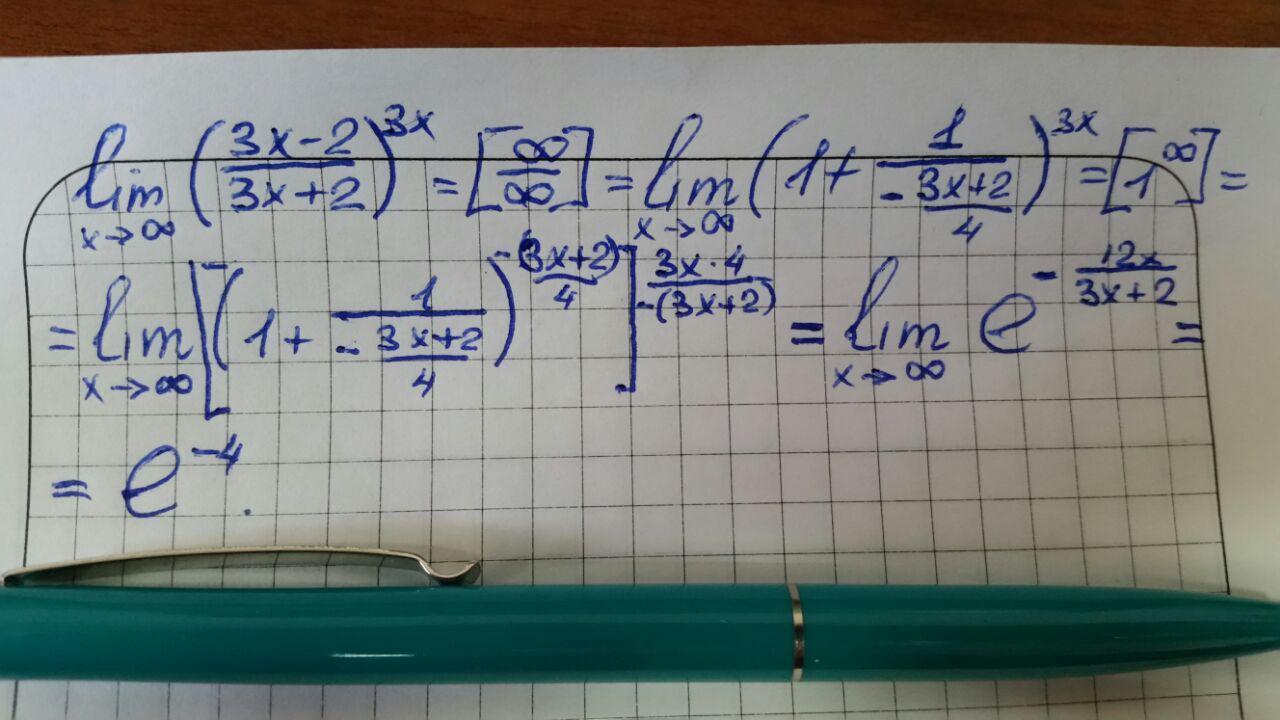 lim x→∞ ((3x-2)/(3x+2))^(3x) = [∞/∞] = lim x→∞ (1 + 1/(-(3x+2)/4))^(3x) = [1^∞] =
= lim x→∞ [(1 + 1/(-(3x+2)/4))^(-(3x+2)/4)]^((3x·4)/(-(3x+2))) = lim x→∞ e^(-12x/(3x+2)) =
= e^(-4).